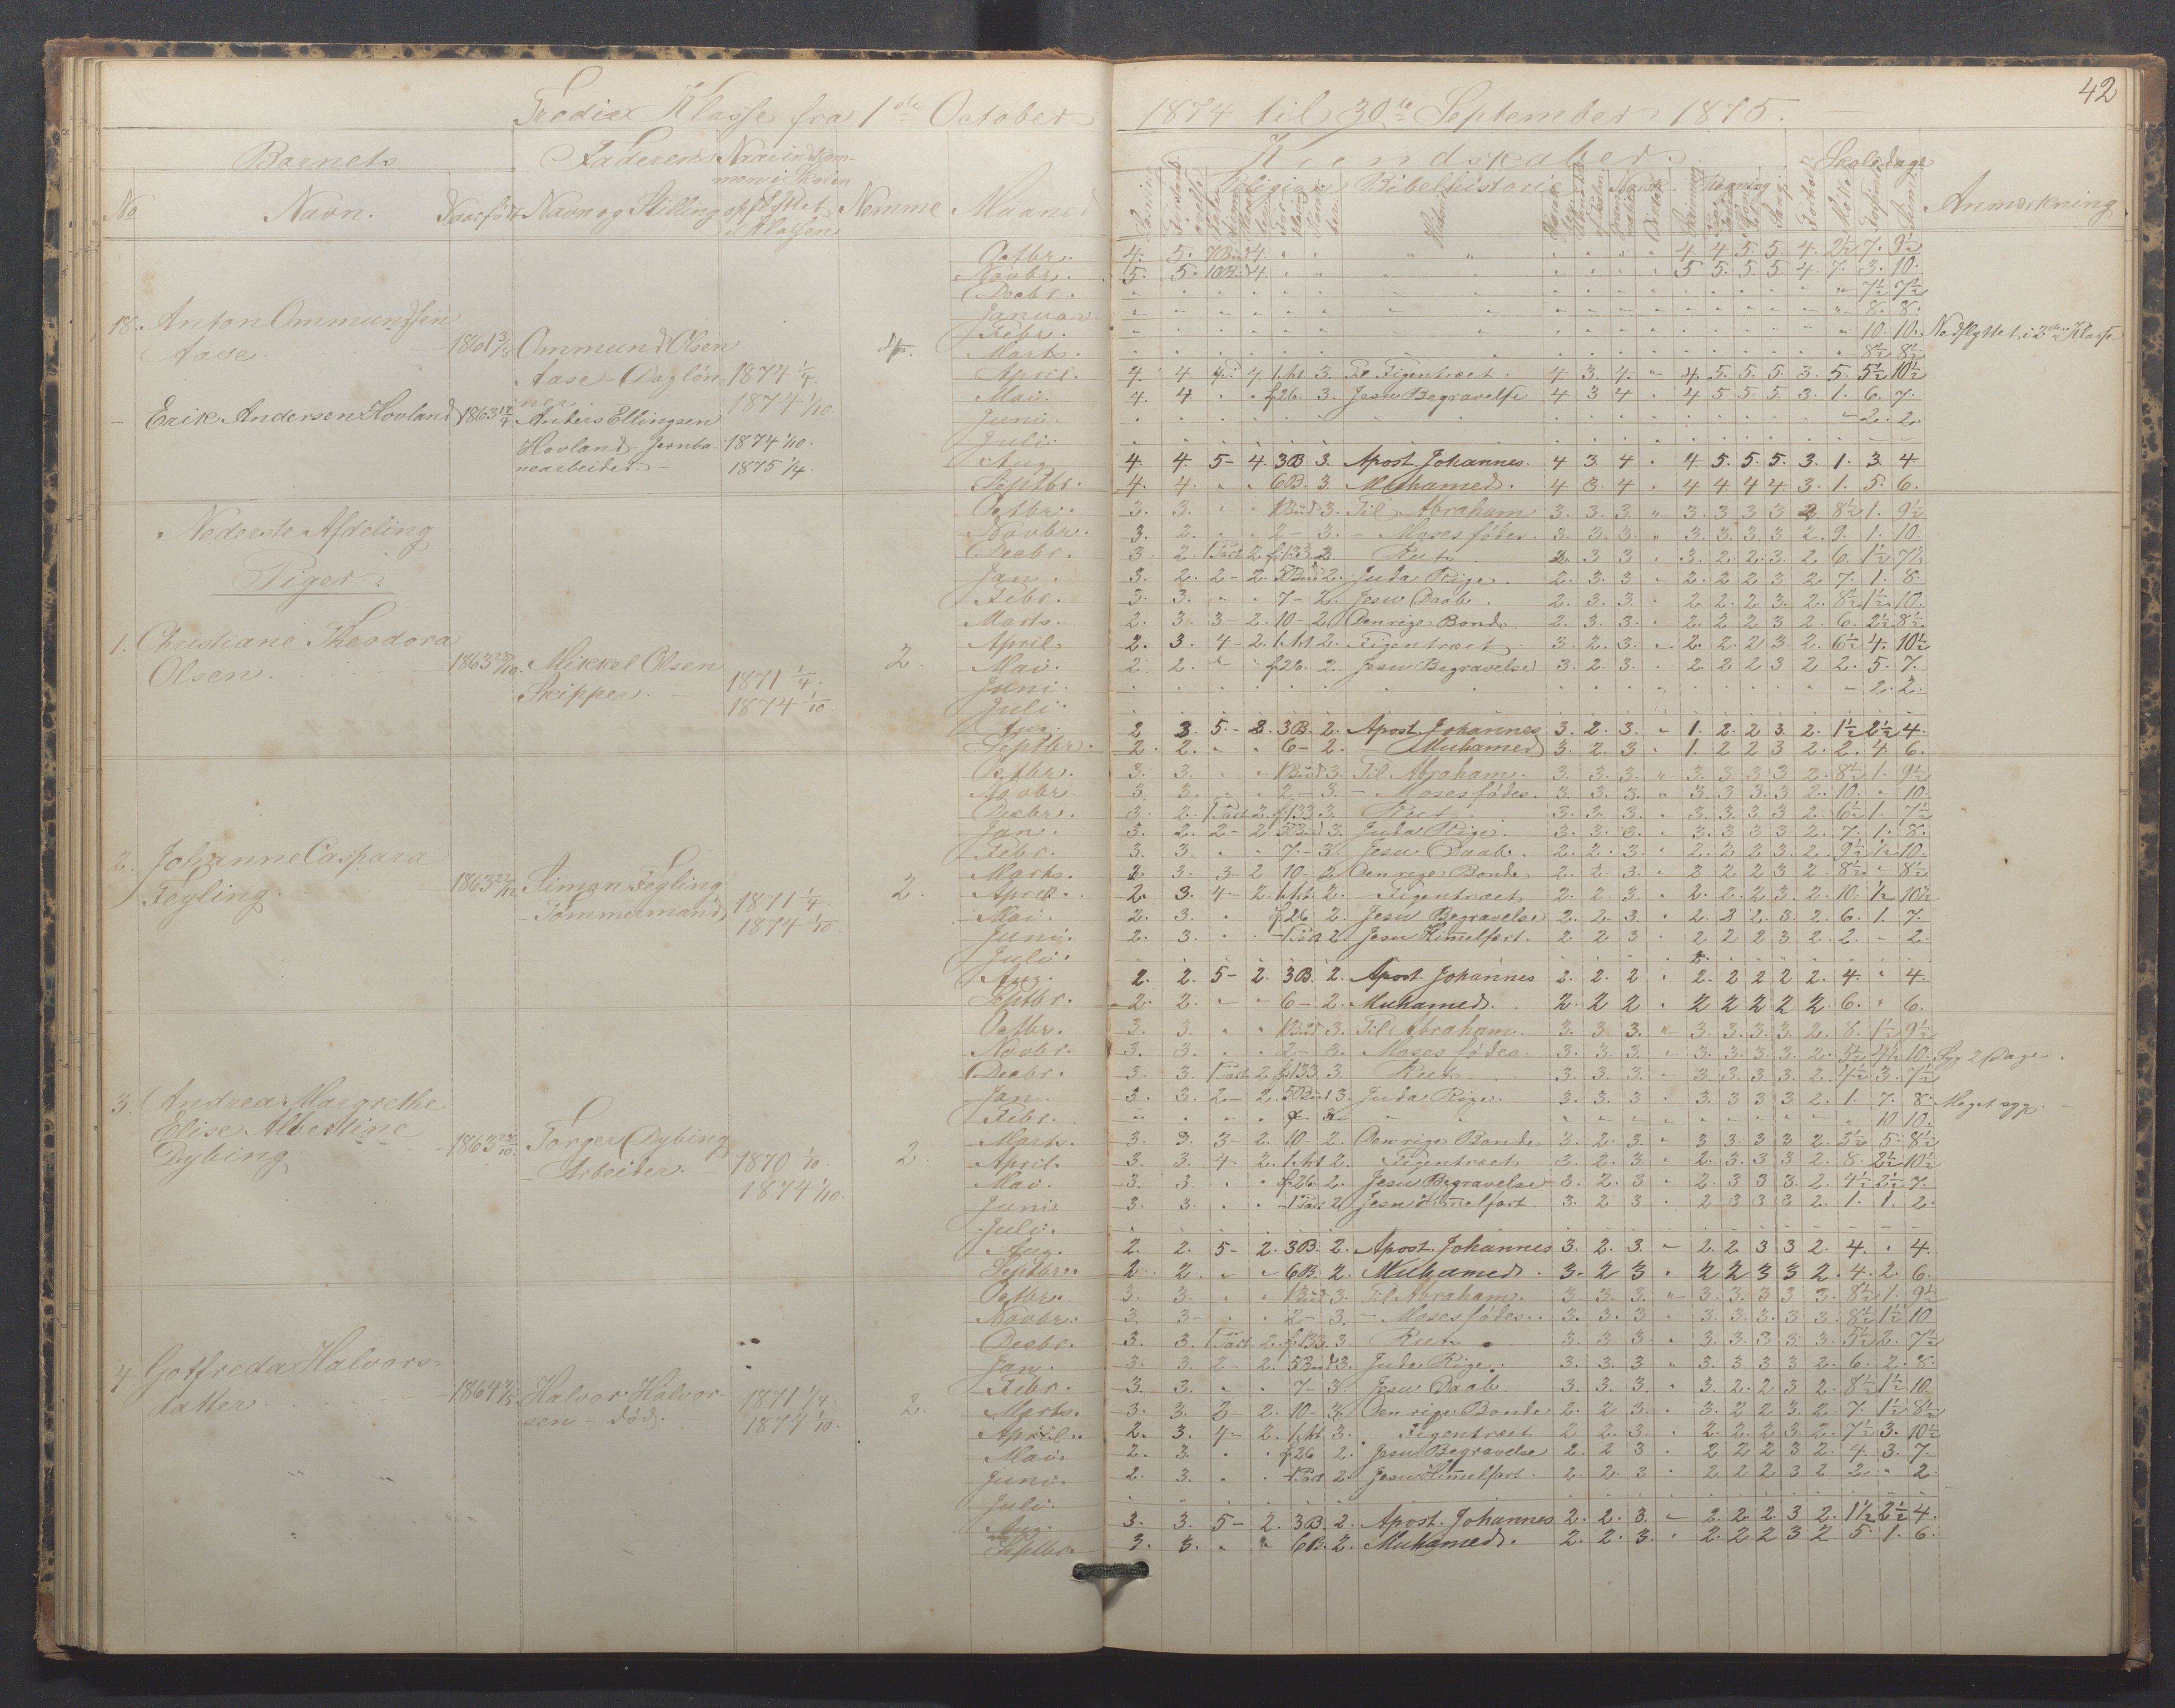 42
Tredie Klasse fra 1ste October 1874 til 30te September 1875.
Barnets Faderens Naar indkommen i Skolen
No Navn. Naar født Navn og Stilling opflyttet i Klassen Nemme Maaned
Kundskaber. Skoledage
Religion Bibelhistorie Norsk. Regning Anmærkning
18. Anton Ommundsen
Aase
1861 Ommund Olsen
Aase - Dagløn-
ner
1874 1/4.
1874 1/10
4.
- Erik Andersen Hovland 1863 Anders Ellingsen
Hovland Jernba-
nearbeider. -
1874 1/10.
1875 1/4.
Octbr. 4. 5. 7 Bud 4. 4 4 5 5. 4. 2½ 7. 9½
Novbr. 5. 5. 10 Bud 4. 5 5. 5. 5. 4. 7. 3. 10.
Decbr. 7½ 7½
Januar 8. 8.
Febr. 10. 10. Nedflyttet i 2den Klasse
Marts. 8½ 8½
April. 4. 4 4. 4 1. Art 3. Til Figentræet. 4 3. 4. 4. 5. 5. 5 3. 5. 5½ 10½
Mai. 4. 4 f 26. 3. Jesu Begravelse 4 3 4 4 5 5. 5. 3. 1. 6. 7.
Juni. 2. 2.
Juli.
Aug. 4. 4. 5 - 4. 3 B 3. Apost. Johannes. 4 3 4 4. 5. 5. 5. 3. 1. 3. 4.
Septbr. 4. 4. 6 B. 3. Muhamed. 4 3. 4 4 4. 4 4. 3. 1. 5. 6.
Nederste Afdeling
Piger.
1. Christiane Theodora
Olsen.
1863 28/10. Mikkel Olsen
Skipper. -
1871 1/4.
1874 1/10.
2.
Octbr. 3. 3. 1 Bud 3. Til Abraham 3. 3. 3. 3. 3 3 3 2. 8½ 1. 9½
Novbr. 3. 2. 2 - 3. - Moses fødes. 3. 3. 3. 3. 3. 3. 3 2. 9. 1. 10.
Decbr. 3. 2. 1 Part 2. f. 133 3 Rut 3 3 3 3. 2. 2. 3. 2 6. 1½ 7½
Jan. 3. 2. 2 - 2. 5 Bud 2. Juda Rige. 2. 3. 3 2. 2 2 3 2 7. 1. 8.
Febr. 3. 3. 7 - 2. Jesu Daab. 2. 3. 3. 2. 2. 2 3. 2. 8½ 1½ 10.
Marts. 2. 3. 3 - 2. 10 - 2. Den rige Bonde. 2. 3. 3. 2. 2 2 3 2. 6. 2½ 8½
April 2. 3. 4 - 2. 1. Art 2. - Figentræet. 3. 2. 3. 2. 2. 2 3. 2. 6½ 4. 10½
Mai. 2. 2. f 26. 2. Jesu Begravelse 3. 2. 3. 2 2 2 3 2 2. 5. 7.
Juni. 2. 2.
Juli.
Aug. 2 3. 5. - 2. 3 B. 2. Apost. Johannes 3. 2. 3. 1. 2. 2 3. 2. 1½ 2½ 4.
Septbr. 2. 2. 6 - 2. - Muhamed 3. 2. 3 1. 2 2 3 2. 2. 4. 6.
2. Johanne Caspara
Feyling.
1863 22/12 Simon Feyling
- Tømmermand
1871 1/4.
1874 1/10.
2.
Octbr. 3. 3. 1 Bud 3. Til Abraham. 3. 3. 3. 3. 3. 3 3 2. 8½ 1. 9½
Novbr. 3. 3. 2 - 3. - Moses fødes. 3. 3. 3. 3. 3 3. 3 2. 10. 10.
Decbr. 3. 2. 1 Part 2. f 133 3. Rut. 3. 3. 3. 3. 3 3 3 2. 6½ 1. 7½
Jan. 3. 2. 2 - 2 5 Bud 3. Juda Rige. 3. 3. 3. 3. 3 3 3 2. 7. 1. 8.
Febr. 3. 3. 7. - 3. Jesu Daab. 2. 2. 3. 2. 2 2 3. 2. 9½ ½ 10.
Marts. 2. 3. 3 - 2 10 - 2 Den rige Bonde 2. 2. 3. 2 2 2 3 2. 8½ 8½
April. 2. 3. 4 - 2. 1. Art. 2. - Figentræet 2. 2. 3. 2. 2. 2 3. 2. 10. ½ 10½
Mai. 2. 3. f 26. 2. Jesu Begravelse 2. 2. 3. 2. 2 2. 3. 2. 6. 1. 7.
Juni. 2. 3. - 1 Part 2. Jesu Himmelfart. 2 2 3 2 2 2 3 2. 2. 2.
Juli.
Aug. 2. 2. 5 - 2. 3 B. 2. Apost. Johannes 2. 2. 2 2. 2 2 2 2. 4. 4.
Septbr. 2. 2. 6 - 2. Muhamed. 2. 2 2 2 2 2 2 2. 6. 6.
3. Andrea Margrethe
Elise Albertine
Dybing
1863 Torger Dybing
- Arbeider. -
1870 1/10.
1874 1/10.
2.
Octbr. 3. 3. 1 Bud 3. Til Abraham. 3. 3 3. 3. 3. 3. 3. 2. 8. 1½ 9½
Novbr. 3. 3. 2 - 3. Moses fødes. 3. 3. 3. 3. 3. 3. 3. 2. 10. Syg 2 Dage.
Decbr. 3. 3. 1 Part 2. f 133 3. Rut 3. 3. 3. 3. 3. 3 3. 2. 4½ 3. 7½
Jan. 3. 3. 2 - 2. 5 Bud 3. Juda Rige. 3. 3. 3 3. 3 3 3 2. 1. 7. 8. Meget syg. -
Febr. 10 10.
Marts. 3. 3. 3 - 2. 10 - 2. Den rige Bonde 3. 2. 3. 3 3. 3 3 2. 3½ 5. 8½
April. 3. 3. 4. 2. 1. Art 2. - Figentræet 3. 2. 3. 2. 3. 3 3 2. 8. 2½ 10½
Mai. 3. 3. f 26. 2. Jesu Begravelse 3. 2. 3 2. 3 3 3. 2. 4½ 2½ 7.
Juni. 3. 3. - 1 Part 2 Jesu Himmelfart. 3 2 3 2 3 3 3 2. 1. 1. 2.
Juli.
Aug. 2. 2. 5 - 2. 3 B. 2. Apost. Johannes 3. 2. 3. 2. 2 3 3 2. 4. 4.
Septbr. 2. 2. 6 B. 2. Muhamed. 3. 2 3 2 2 3 3 2. 4. 2. 6.
4. Gotfreda Halvors-
datter.
1864 Halvor Halvor-
sen - død. -
1871 1/4.
1874 1/10.
2.
Octbr. 3. 3. 1 Bud 3. Til Abraham. 3 3 3. 3. 3. 3 3 3. 8½ 1. 9½
Novbr. 3. 3 - 2 - 3. - Moses fødes. 3. 3. 3 3. 3. 3. 3. 3. 8½ 1½ 10
Decbr. 3. 3. 1 Part. 2. f 133. 3. Rut. 3 3 3 3. 3. 3 3 3. 5½ 2. 7½
Jan. 3. 3. 2 - 2. 5 Bud 3. Juda Rige. 3. 3. 3 3. 3 3 3 2. 6. 2. 8.
Febr. 3. 3. 7 - 3. Jesu Daab 3. 3. 3. 3. 2. 2 3 2. 8½ 1½ 10
Marts. 3. 3. 3 - 2. 10 - 3. Den rige Bonde 2. 2 3. 3. 2 2 3. 2. 7. 1½ 8½
April. 2. 3. 4 - 2. 1. Art 3. Figentræet 2 2 3. 2. 2. 2 3 2. 7½ 3. 10½
Mai. 2. 3. f 26 2. Jesu Begravelse 2. 2 3 2 2 2 3 2. 4. 3. 7.
Juni. 2. 3. - 1 Part 2. Jesu Himmelfart. 2. 2. 3 2 2 2 3 2 2. 2.
Juli.
Aug. 3. 3. 5 - 2. 3 B. 2. Apost. Johannes 2. 2. 3. 2. 2. 2. 3 2. 1½ 2½ 4.
Septbr. 3. 3. 6 B. 2. Muhamed. 2. 2. 3. 2. 2 2 3 2 5. 1. 6.